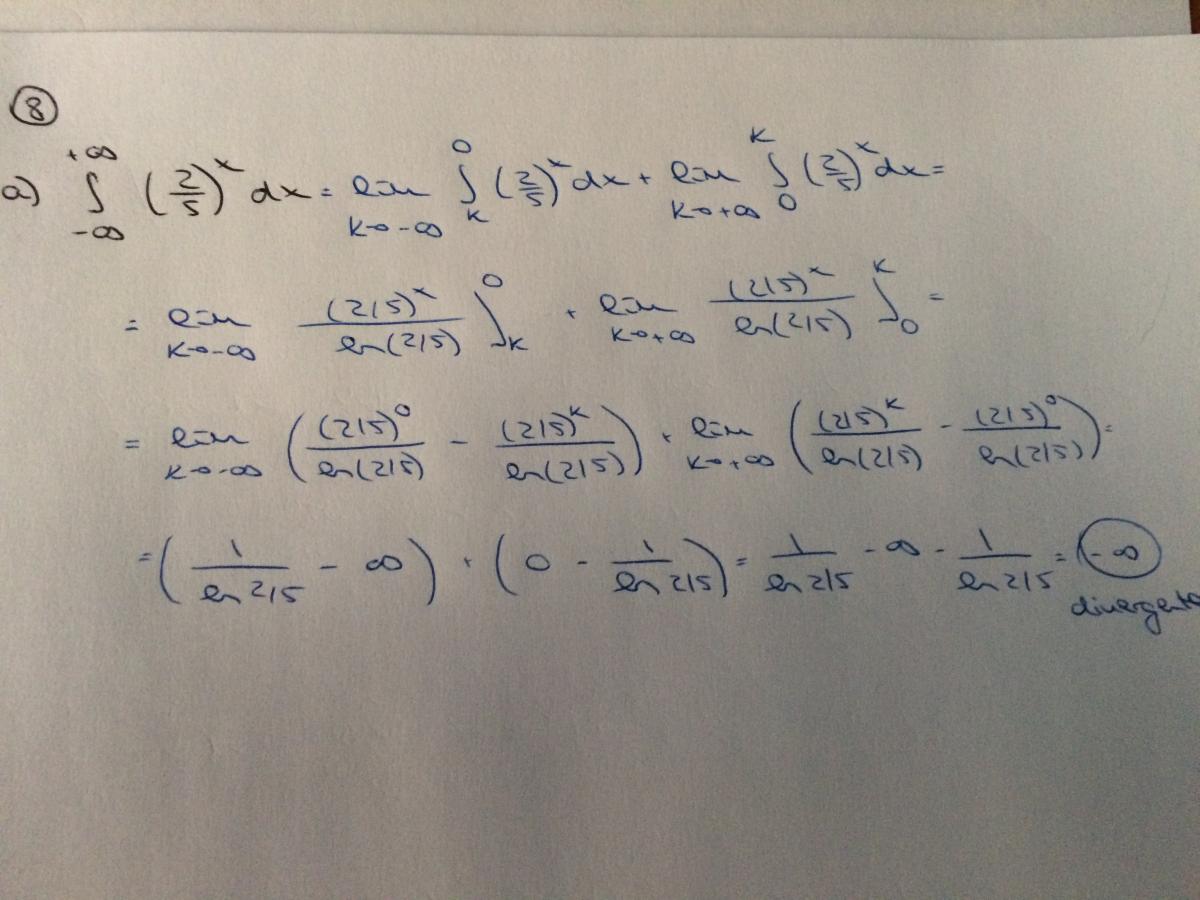 8
a) ∫_{-∞}^{+∞} (2/5)^x dx = lim_{k→-∞} ∫_k^0 (2/5)^x dx + lim_{k→+∞} ∫_0^k (2/5)^x dx =
= lim_{k→-∞} (2/5)^x / ln(2/5) ]_k^0 + lim_{k→+∞} (2/5)^x / ln(2/5) ]_0^k =
= lim_{k→-∞} ( (2/5)^0 / ln(2/5) - (2/5)^k / ln(2/5) ) + lim_{k→+∞} ( (2/5)^k / ln(2/5) - (2/5)^0 / ln(2/5) ) =
= ( 1 / ln 2/5 - ∞ ) + ( 0 - 1 / ln 2/5 ) = 1 / ln 2/5 - ∞ - 1 / ln 2/5 = -∞
divergente